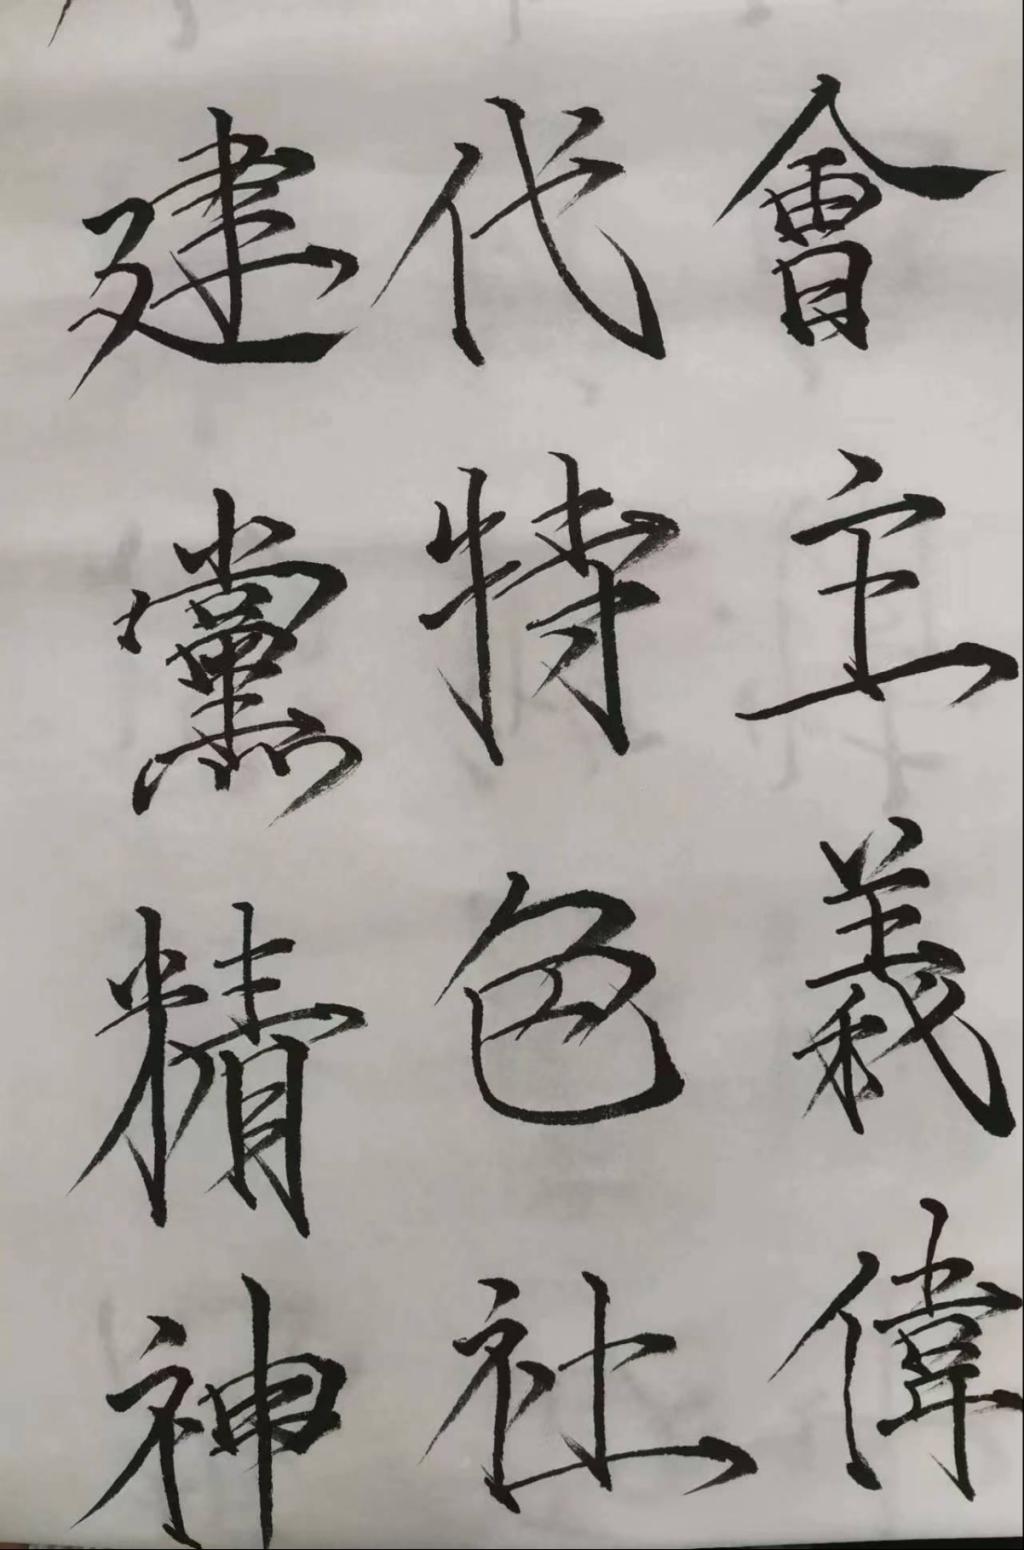 建黨精神
代特色社
會主義偉